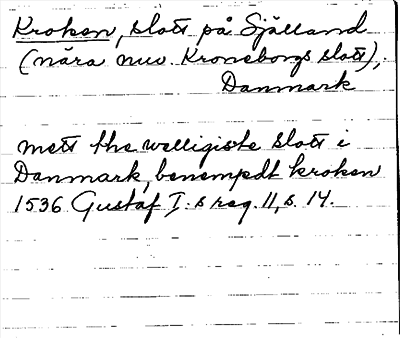 Kroken, slott på Själland
(nära nuv. Kronoborgs slott),
Danmark
mett the welligiste slott i
Danmark, benempdt kroken
1536 Gustaf I:s reg. 11, s. 14.